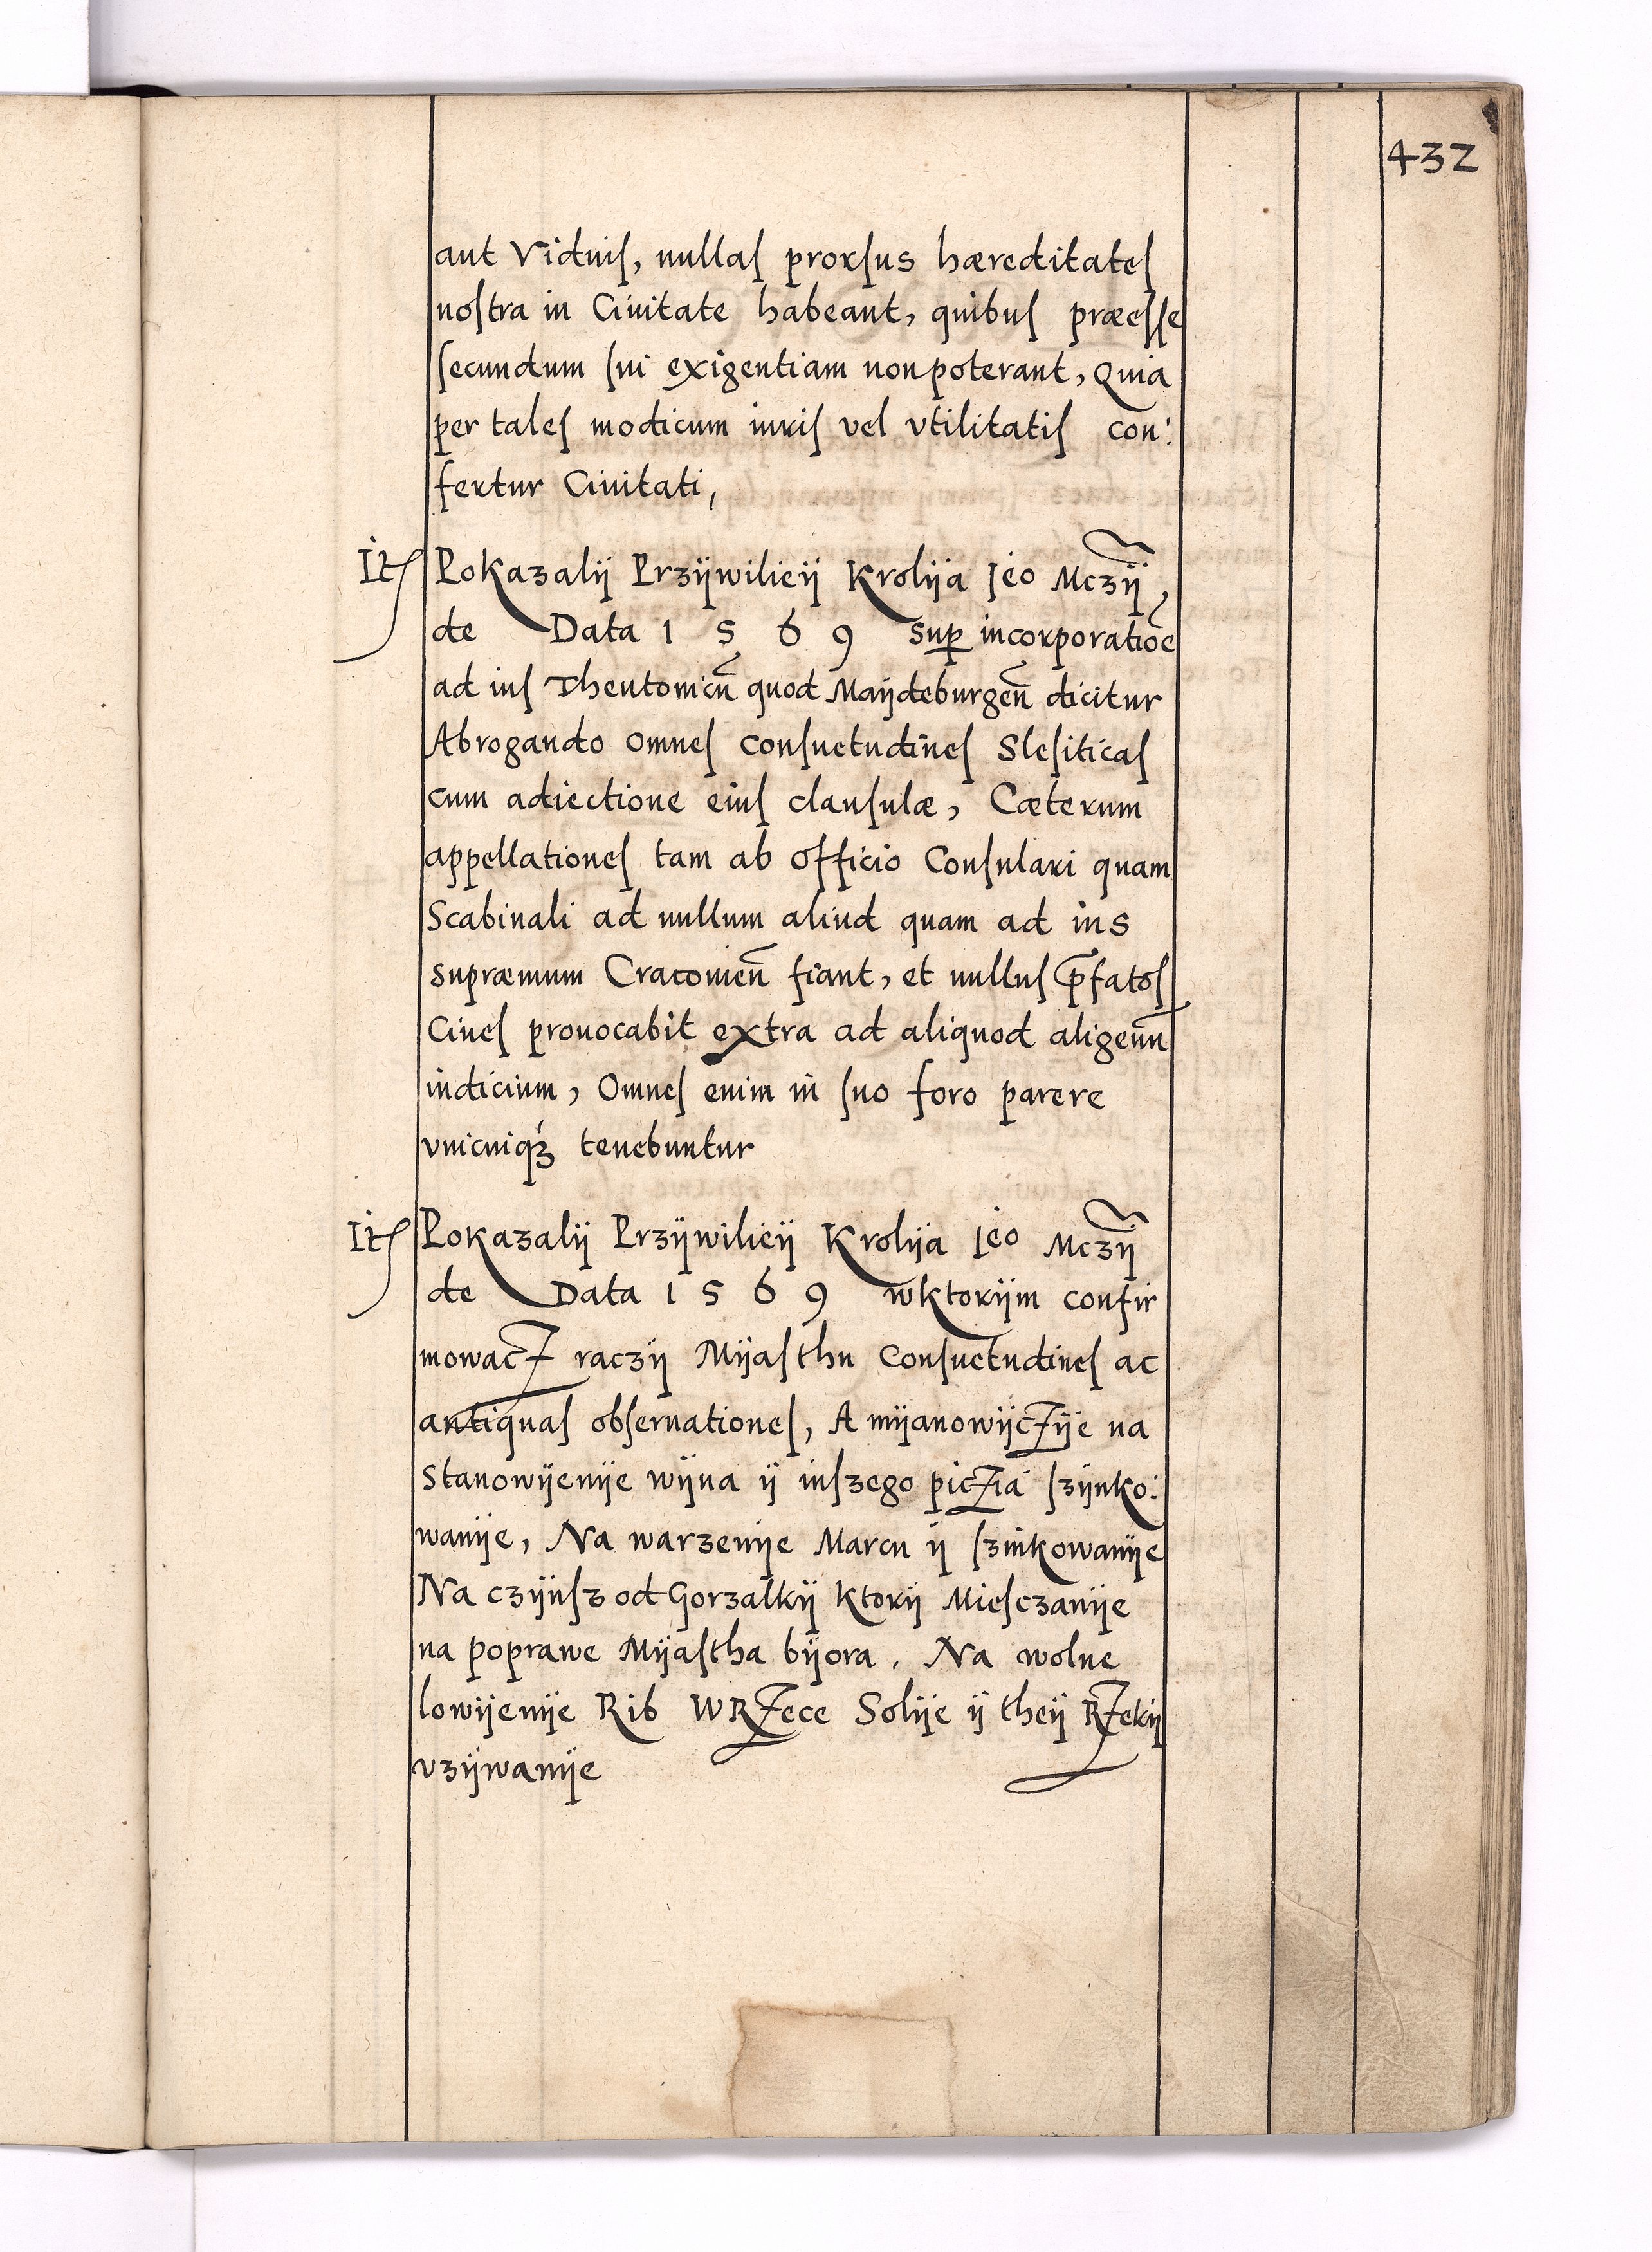 432
aut Viduiſ, nullaſ prorſus hæreditateſ
noſtra in Ciuitate habeant, quibuſ præeſſe
ſecundum ſui exigentiam non poterant, Quia
per taleſ modicum iuriſ vel vtilitatiſ con:
fertur Ciuitati,
Itſ Pokazalÿ Przÿwilieÿ Krolÿa Jeo Mczÿ,
de Data 1569 sup incorporatiõe
ad iuſ Theutonicũ quod Maÿdeburgeñ dicitur
Abrogando omneſ conſuetudineſ Sleſiticaſ
cum adiectione eiuſ clauſulæ, Cæterum
appellationeſ tam ab officio Conſulari quam
Scabinali ad nullum aliud quam ad ius
supræmum Cracouieñ fiant, et nulluſ p̃fatoſ
Ciueſ prouocabit extra ad aliquod aligenũ
iudicium, Omneſ enim in ſuo foro parere
vnicuiqꝫ tenebuntur
Itſ Pokazalÿ Przÿwilieÿ Krolÿa Jeo Mczÿ
de Data 1569 wktorÿm confir
mowacz raczÿ Mÿaſthu Conſuetudineſ ac
antiquaſ obſeruationeſ, A mÿanowÿczÿe na
Stanowÿenÿe wÿna ÿ inſzego piczia ſzÿnko:
wanÿe, Na warzenÿe Marcu ÿ ſzinkowanÿe
Na czÿnſz od Gorzalkÿ ktorÿ Mieſczanÿe
na poprawe Mÿaſtha bÿora, Na wolne
lowÿenÿe Rib WRzece Solÿe ÿ theÿ Rzekÿ
vzÿwanÿe